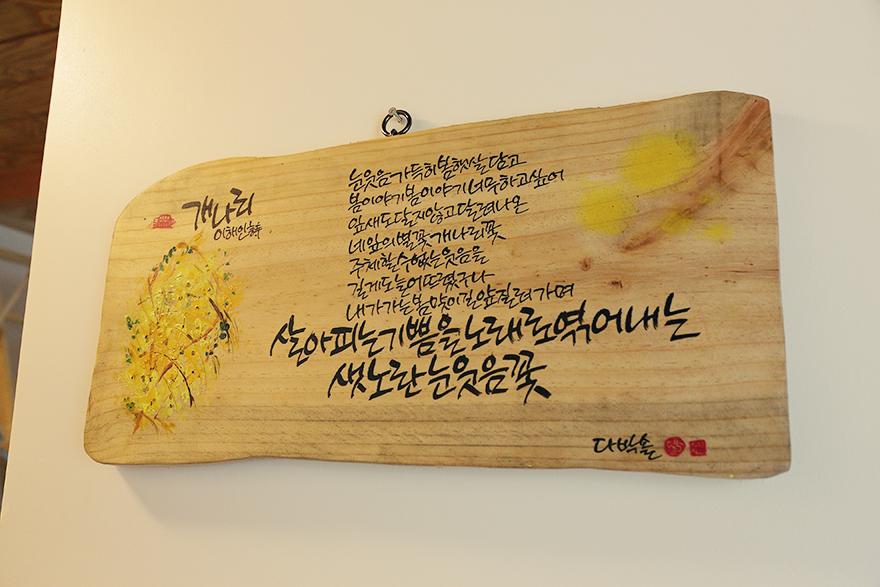 개나리
이해인 詩
눈웃음 가득히 봄햇살 담고
봄이야기 봄이야기 너무 하고 싶어
잎새도 달지 않고 달려나온
네잎의 별꽃 개나리꽃
주체할 수 없는 웃음을
길게도 늘어뜨렸구나
내가 가는 봄맞이 길 앞질러 가며
살아 피는 기쁨을 노래로 엮어내는
샛노란 눈웃음꽃
다박솔